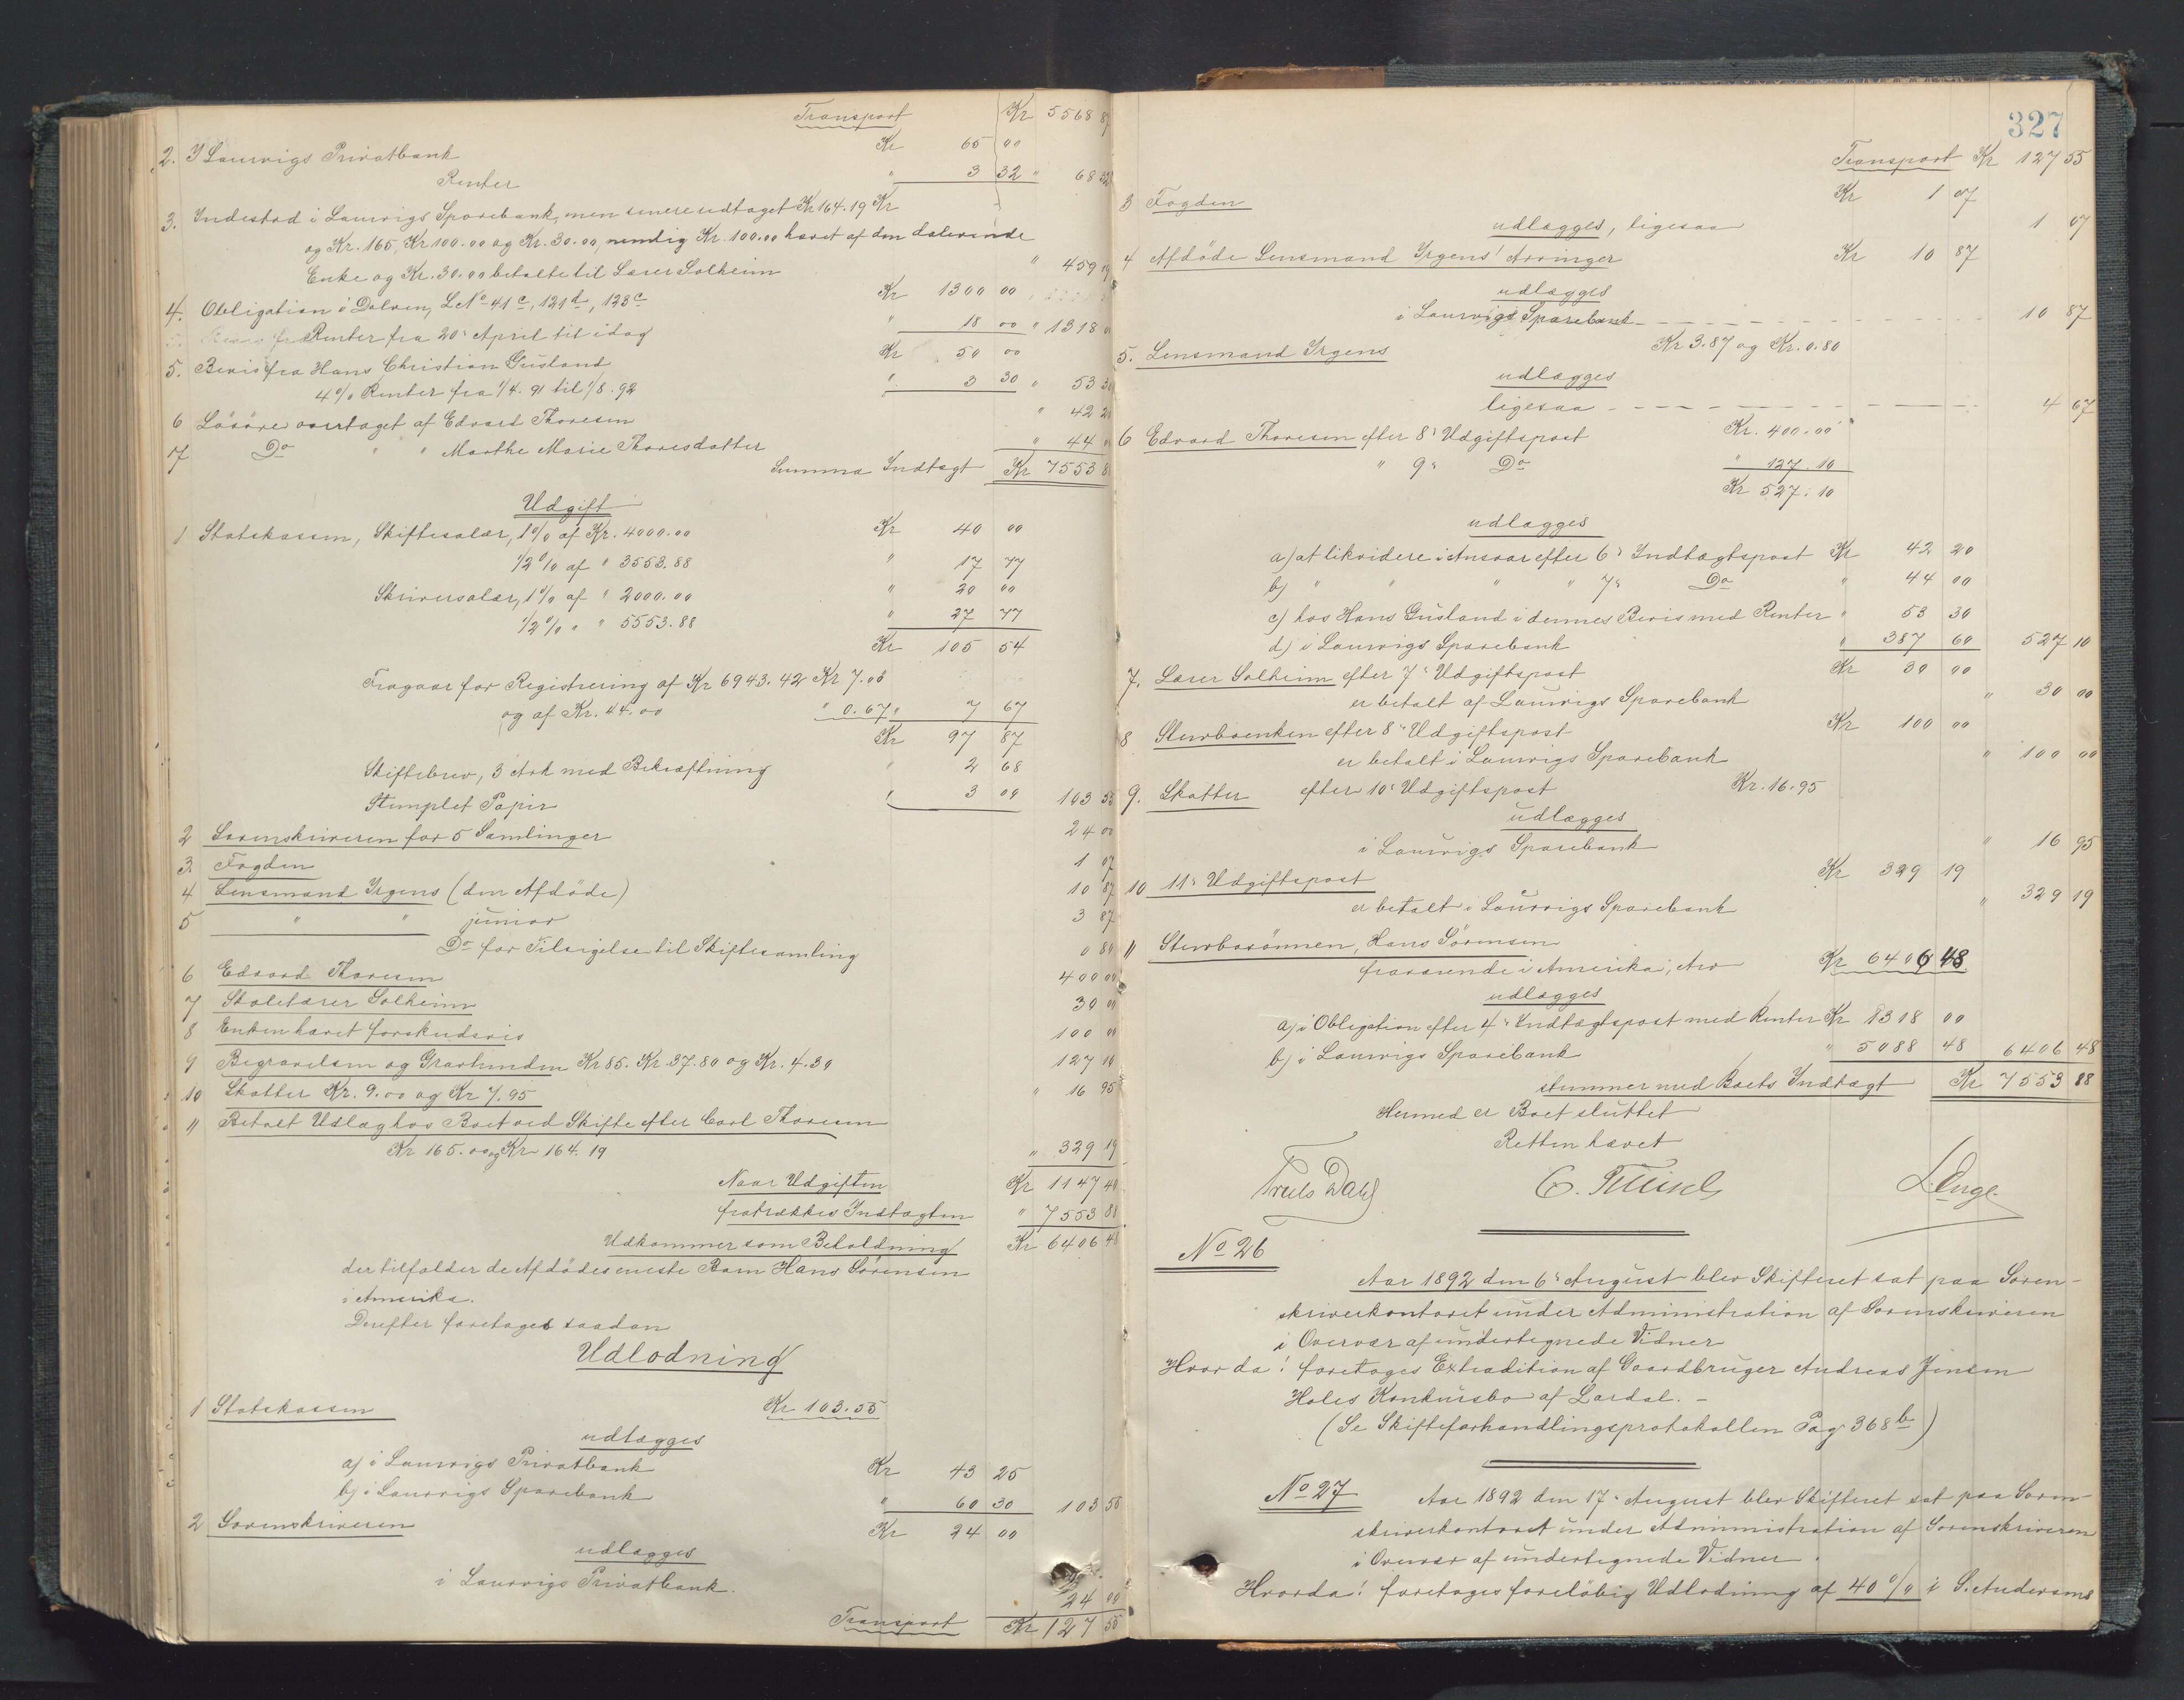 Transport Kr 5568 87
2. I Laurvigs Privatbank Kr 65 00
Renter " 3 32 " 68 32
3. Indestod i Laurvigs Sparebank, men senere udtaget Kr 164.19 Kr
og Kr. 165, Kr 100.00 og Kr. 30.00, nemlig Kr. 100.00 hævet af den dalevende
Enke og Kr. 30.00 betalte til Lærer Solheim " 459 19
4. Obligation i Dolven, LNo 41c, 121d, 123c Kr 1300 00
Renter fra 20de April til idag " 18 00 " 1318 00
5. Bevis fra Hans Christian Gusland Kr 50 00
4% Renter fra 1/4. 91 til 1/8. 92 " 3 30 " 53 30
6 Lösöre overtaget af Edvard Thoresen " 42 20
7 Do " " Marthe Marie Thoresdatter " 44 00
Summa Indtægt Kr 7553 88
Udgift
1 Statskassen, Skiftesalær, 1% af Kr. 4000.00 Kr 40 00
1/2% af " 3553.88 " 17 77
Skriversalær, 1% af " 2000.00 " 20 00
1/2% " " 5553.88 " 27 77
Kr 105 54
Fragaar for Registrering af Kr 6943.42 Kr 7.00
og af Kr. 44.00 " 0.67 " 7 67
Kr 97 87
Skiftebrev, 3 Ark med Bekræftning " 2 68
Stemplet Papir " 3 00 103 55
2 Sorenskriveren for 5 Samlinger 24 00
3. Fogden 1 07
4 Lensmand Irgens (den Afdöde) 10 87
5 " " junior 3 87
Do for Tilsigelse til Skiftesamling 0 80
6 Edvard Thoresen 400 00
7 Skolelærer Solheim 30 00
8 Enken hævet forskudsvis 100 00
9 Begravelsen og Gravlunden Kr 85. Kr. 37.80 og Kr. 4.30 127 10
10 Skatter Kr. 9.00 og Kr 7.95 " 16 95
11 Betalt Udlæg hos Boet ved Skifte efter Carl Thoresen
Kr 165.00 og Kr 164.19 " 329 19
Naar Udgiften Kr 1147 40
fratrækkes Indtægten " 7553 88
Udkommer som Beholdning Kr 6406 48
der tilfalder de Afdödes eneste Barn Hans Sörensen
i Amerika.
Derefter foretoges saadan
Udlodning
1 Statskassen Kr 103.55
udlægges
a) i Laurvigs Privatbank Kr 43 25
b) i Laurvigs Sparebank " 60 30 103 55
2 Sorenskriveren Kr 24 00
udlægges
i Laurvigs Privatbank. 24 00
Transport Kr 127 55
327
Transport Kr 127 55
3 Fogden Kr 1 07
udlægges, ligesaa 1 07
4 Afdöde Lensmand Irgens' Arvinger Kr 10 87
udlægges
i Laurvigs Sparebank 10 87
5. Lensmand Irgens Kr 3.87 og Kr. 0.80
udlægges
ligesaa 4 67
6 Edvard Thoresen efter 8de Udgiftspost Kr. 400.00
" 9de Do " 127.10
Kr 527.10
udlægges
a) at likvidere i Ansvar efter 6te Indtægtspost Kr 42 20
b) " " " " 7de Do " 44 00
c) hos Hans Gusland i dennes Bevis med Renter " 53 30
d) i Laurvigs Sparebank " 387 60 527 10
7. Lærer Solheim efter 7de Udgiftspost Kr 30 00
er betalt af Laurvigs Sparebank " 30 00
8 Stervboenken efter 8de Udgiftspost Kr 100 00
er betalt i Laurvigs Sparebank " 100 00
9. Skatter efter 10de Udgiftspost Kr. 16.95
udlægges
i Laurvigs Sparebank " 16 95
10 11te Udgiftspost Kr 329 19
er betalt i Laurvigs Sparebank " 329 19
11 Stervbosönnen, Hans Sörensen
fraværende i Amerika, Arv Kr 6406 48
udlægges
a) i Obligation efter 4de Indtægtspost med Renter Kr 1318 00
b) i Laurvigs Sparebank " 5088 48 6406 48
stemmer med Boets Indtægt Kr 7553 88
Hermed er Boet sluttet
Retten hævet
Truls Dahl
No 26
Aar 1892 den 6te August blev Skifteret sat paa Soren-
skriverkontoret under Administration af Sorenskriveren
i Overvær af undertegnede Vidner
Hvor da! foretoges Extradition af Gaardbruger Andreas Jensen
Holes Konkursbo af Lardal. -
(Se Skifteforhandlingsprotokollen Pag 368b)
No 27 Aar 1892 den 17de August blev Skifteret sat paa Soren-
skriverkontoret under Administration af Sorenskriveren
i Overvær af undertegnede Vidner.
Hvorda! foretoges foreløbig Udlodning af 40% i S. Andersens